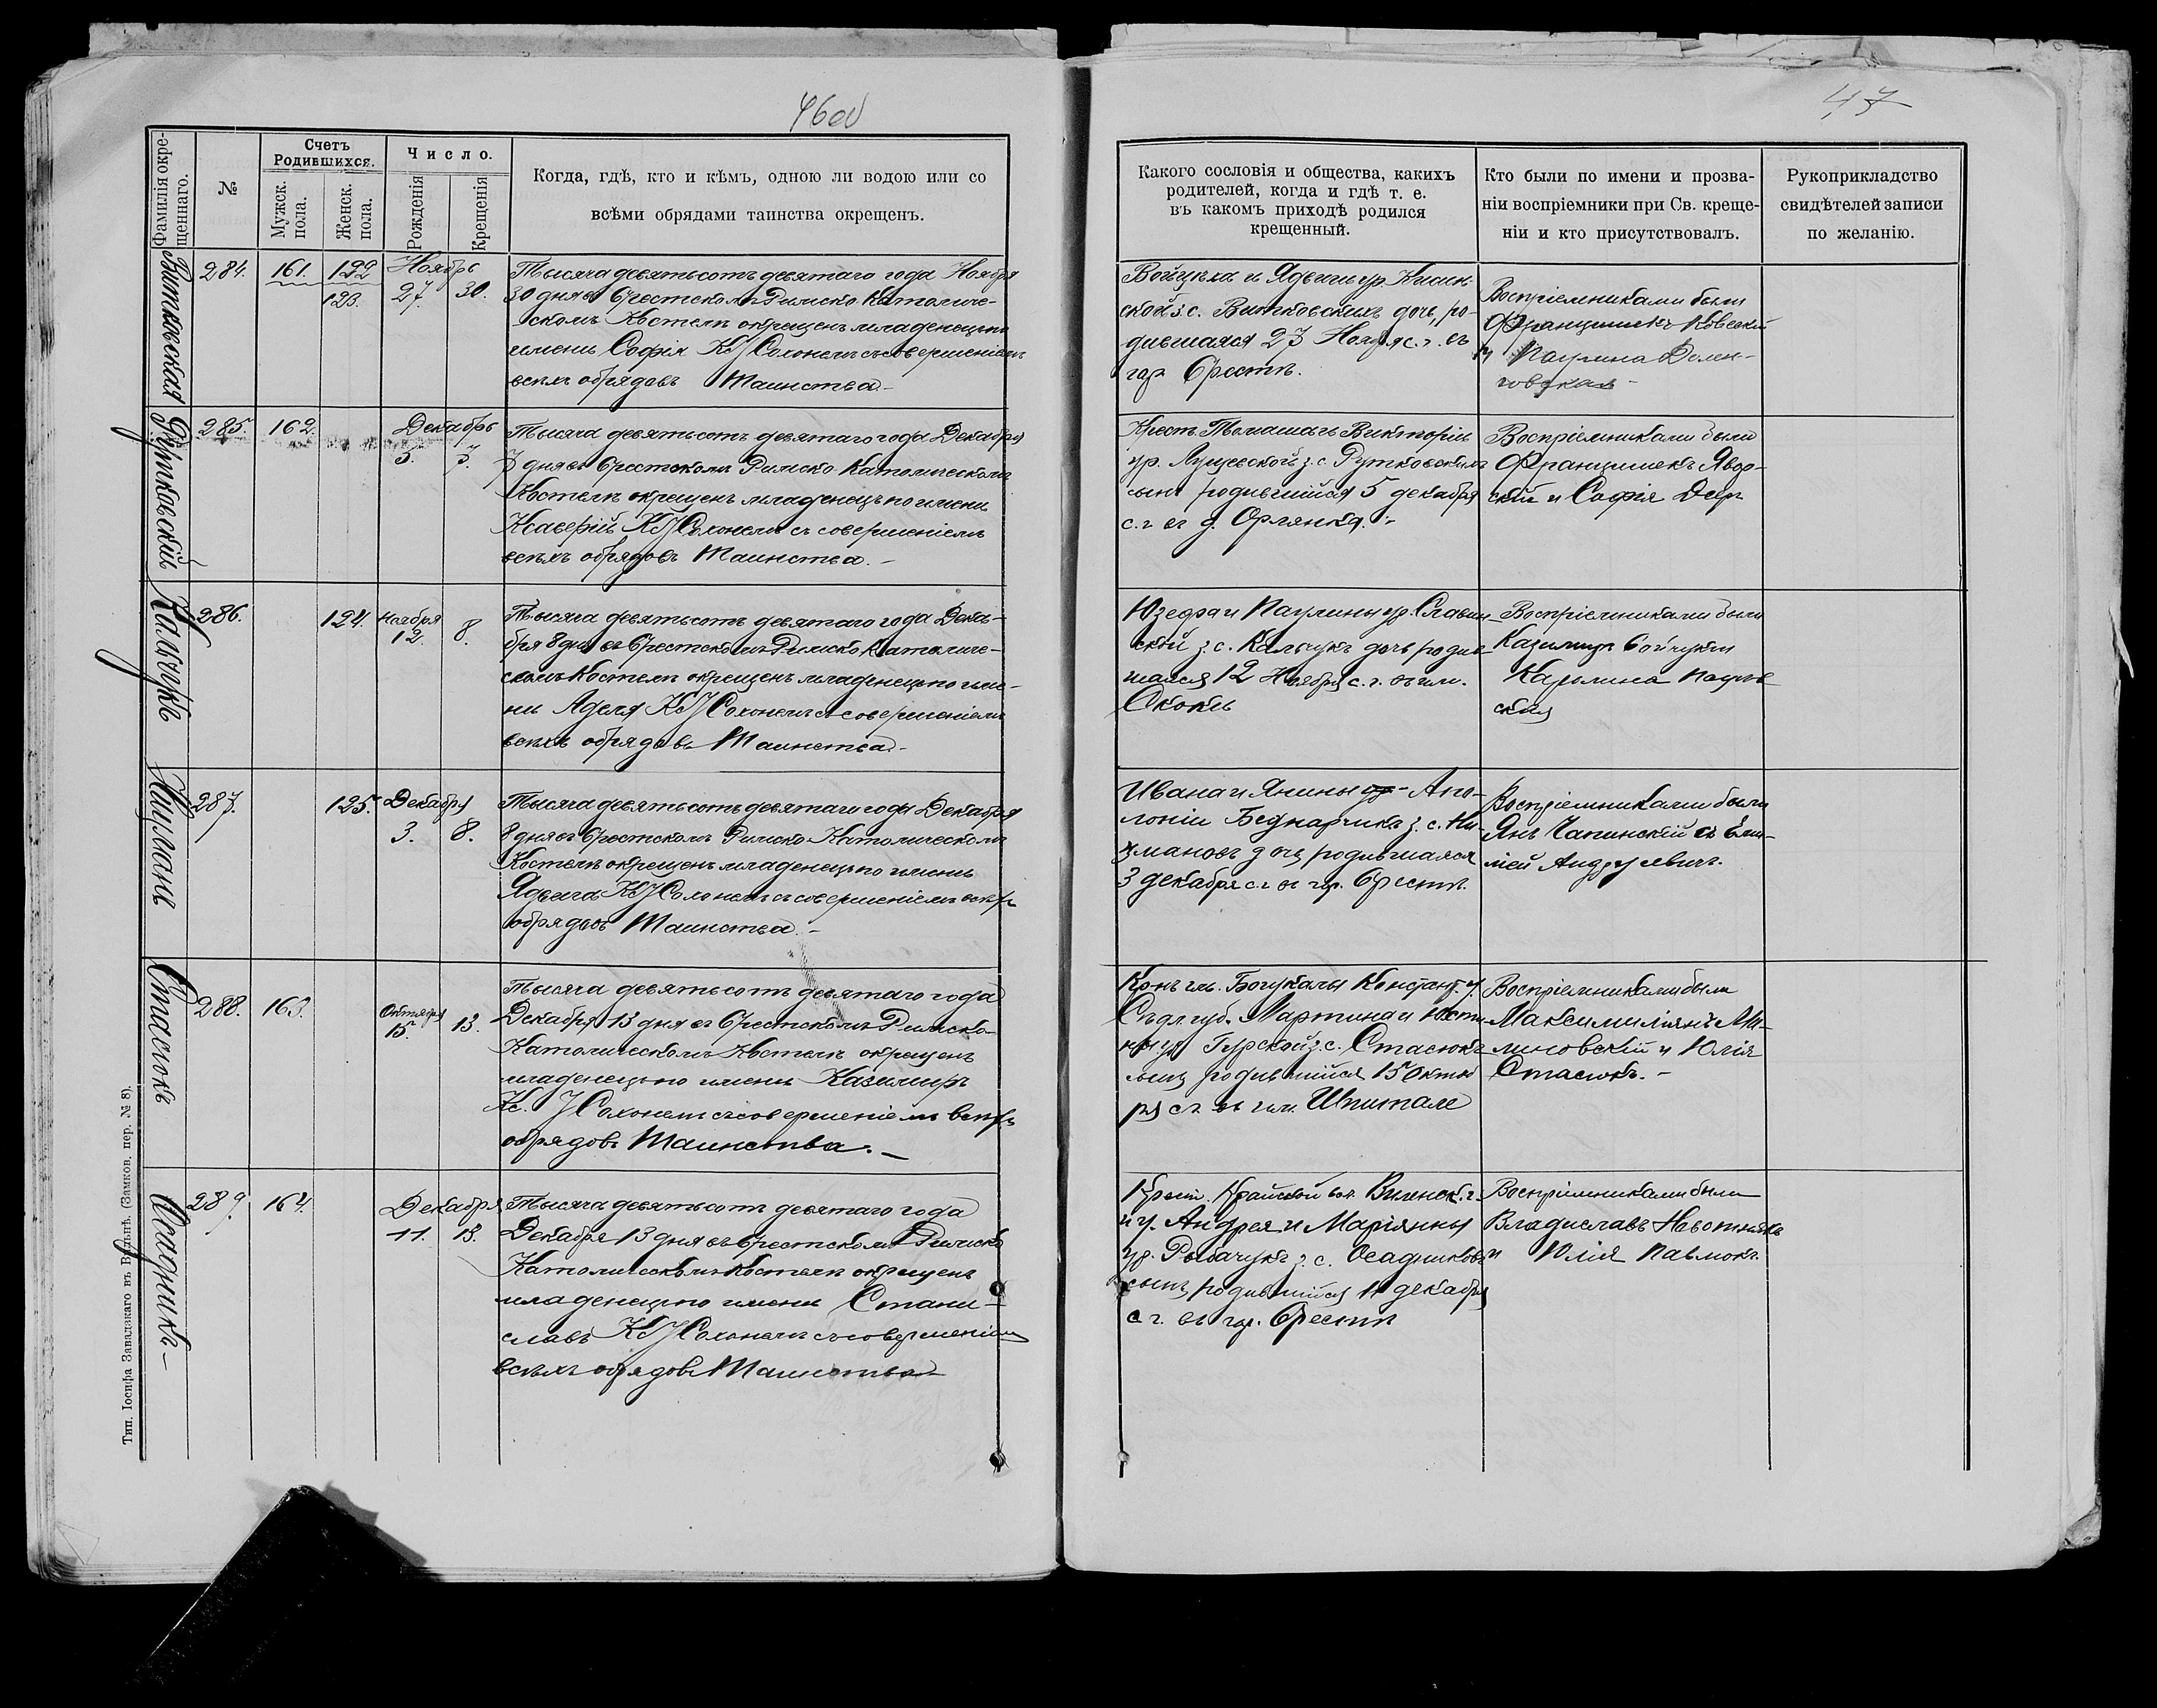 46об
47
Фамилія окре-
щеннаго.
№
Счетъ
Родившихся.
Мужск.
пола.
Женск.
пола.
Число.
Рожденія
Крещенія
Когда, гдѣ, кто и кѣмъ, одною ли водою или со
всѣми обрядами таинства окрещенъ.
Какого сословія и общества, какихъ
родителей, когда и гдѣ т. е.
въ какомъ приходѣ родился
крещенный.
Кто были по имени и прозва-
ніи воспріемники при Св. креще-
ніи и кто присутствовалъ.
Рукоприкладство
свидѣтелей записи
по желанію.
Витковская
284.
161.
122
123.
Ноябрь
27. 30.
Тысяча девятьсотъ девятаго года Ноября
30 дня въ Брестскомъ Римско Католиче-
скомъ Костелѣ окрещенъ младенецъ по
имени Софія Кс. І Сохонемъ съ совершеніемъ
всѣхъ обрядовъ Таинства.-
Войцѣха и Ядвиги ур.
ской з. с. Витковскихъ дочь, ро-
дившаяся 27 Ноября с. г. въ
гор Брестѣ.
Воспріемниками были
Францишекъ
и Паулина Долен-
говская -
Рутковскій
285.
162.
Декабрь
5. 7.
Тысяча девятьсотъ девятаго года Декабря
7 дня въ Брестскомъ Римско Католическомъ
Костелѣ окрещенъ младенецъ по имени
Ксаверій Кс І Сохонемъ съ совершеніемъ
всѣхъ обрядовъ Таинства.-
Крест. Томаша и Викторіи
ур. з. с. Рутковскихъ
сынъ родившійся 5 декабря
с. г. въ д. Орлянка.-
Воспріемниками были
Францишекъ Явор-
скій и Софія
Кальчукъ
286.
124.
Ноября
12. 8.
Тысяча девятьсотъ девятаго года Дека-
бря 8 дня въ Брестскомъ Римско Католиче-
скомъ Костелѣ окрещенъ младенецъ по име-
ни Аделя Кс І Сохонемъ съ совершеніемъ
всѣхъ обрядовъ Таинства.-
Юзефа и Паулины ур. Славин-
ской з. с. Кальчукъ дочь родив-
шаяся 12 Ноября с. г. въ им.
Скоки
Воспріемниками были
Казимиръ Бойчукъ и
Каролина
ская
Ницманъ
287.
125.
Декабря
3. 8.
Тысяча девятьсотъ девятаго года Декабря
8 дня въ Брестскомъ Римско Католическомъ
Костелѣ окрещенъ младенецъ по имени
Ядвига Кс І Сохонемъ съ совершеніемъ всѣхъ
обрядовъ Таинства.-
Ивана и Янины - Апо-
лоніи Беднарчикъ з. с. Ни-
цмановъ дочь родившаяся
3 декабря с. г. въ гор. Брестѣ.
Воспріемниками были
Янъ Чапинскій съ Еми-
ліей
Стасюкъ
288.
163.
Октября
15. 13.
Тысяча девятьсотъ девятаго года
Декабря 13 дня въ Брестскомъ Римско-
Католическомъ Костелѣ окрещенъ
младенецъ по имени Казимиръ
Кс. І Сохонемъ съ совершеніемъ всѣхъ
обрядовъ Таинства.-
Кр. гм. Константин. у.
Сѣдл. губ. Мартина и Юсти-
ны ур. Гурской з. с. Стасюкъ
сынъ родившійся 15 Октяб
ря с. г. въ им. Шпитале
Воспріемниками были
Максимиліянъ Ма-
линовскій и Юлія
Стасюкъ.-
Осадникъ-
289.
164.
Декабря
11. 13.
Тысяча девятьсотъ девятаго года
Декабря 13 дня въ Брестскомъ Римско
Католическомъ Костелѣ окрещенъ
младенецъ по имени Стани-
славъ Кс І Сохонемъ съ совершеніемъ
всѣхъ обрядовъ Таинства
Крест. Крайской вол. Виленск. г.
и у. Андрея и Маріянны
ур. Рыбачукъ з. с. Осадниковъ
сынъ, родившійся 11 декабря
с г. въ гор. Брестѣ
Воспріемниками были
Владиславъ
и Юлія Павлюкъ.
Тип. Іосифа Завадзкаго въ Вильнѣ. (Замков. пер. № 8).